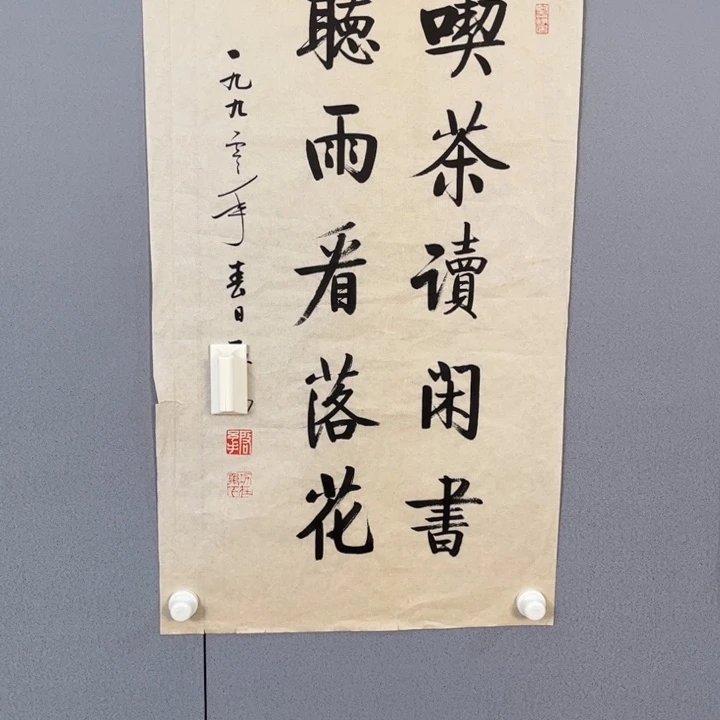 喫茶讀闲書
聽雨看落花
一九九零年春日